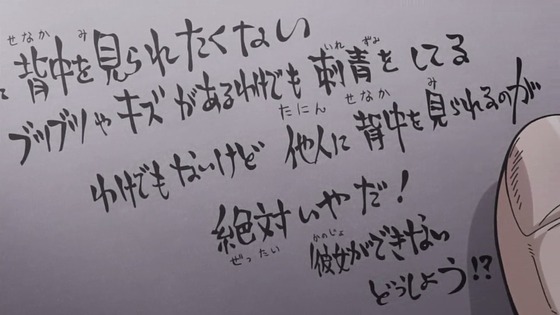 せなか み
背中を見られたくない
いれ ずみ
ブツブツやキズがあるわけでも刺青をしてる
たにん せなか み
わけでもないけど 他人に背中を見られるのが
絶対いやだ!
ぜったい
かのじょ
彼女ができない
どうしよう!?